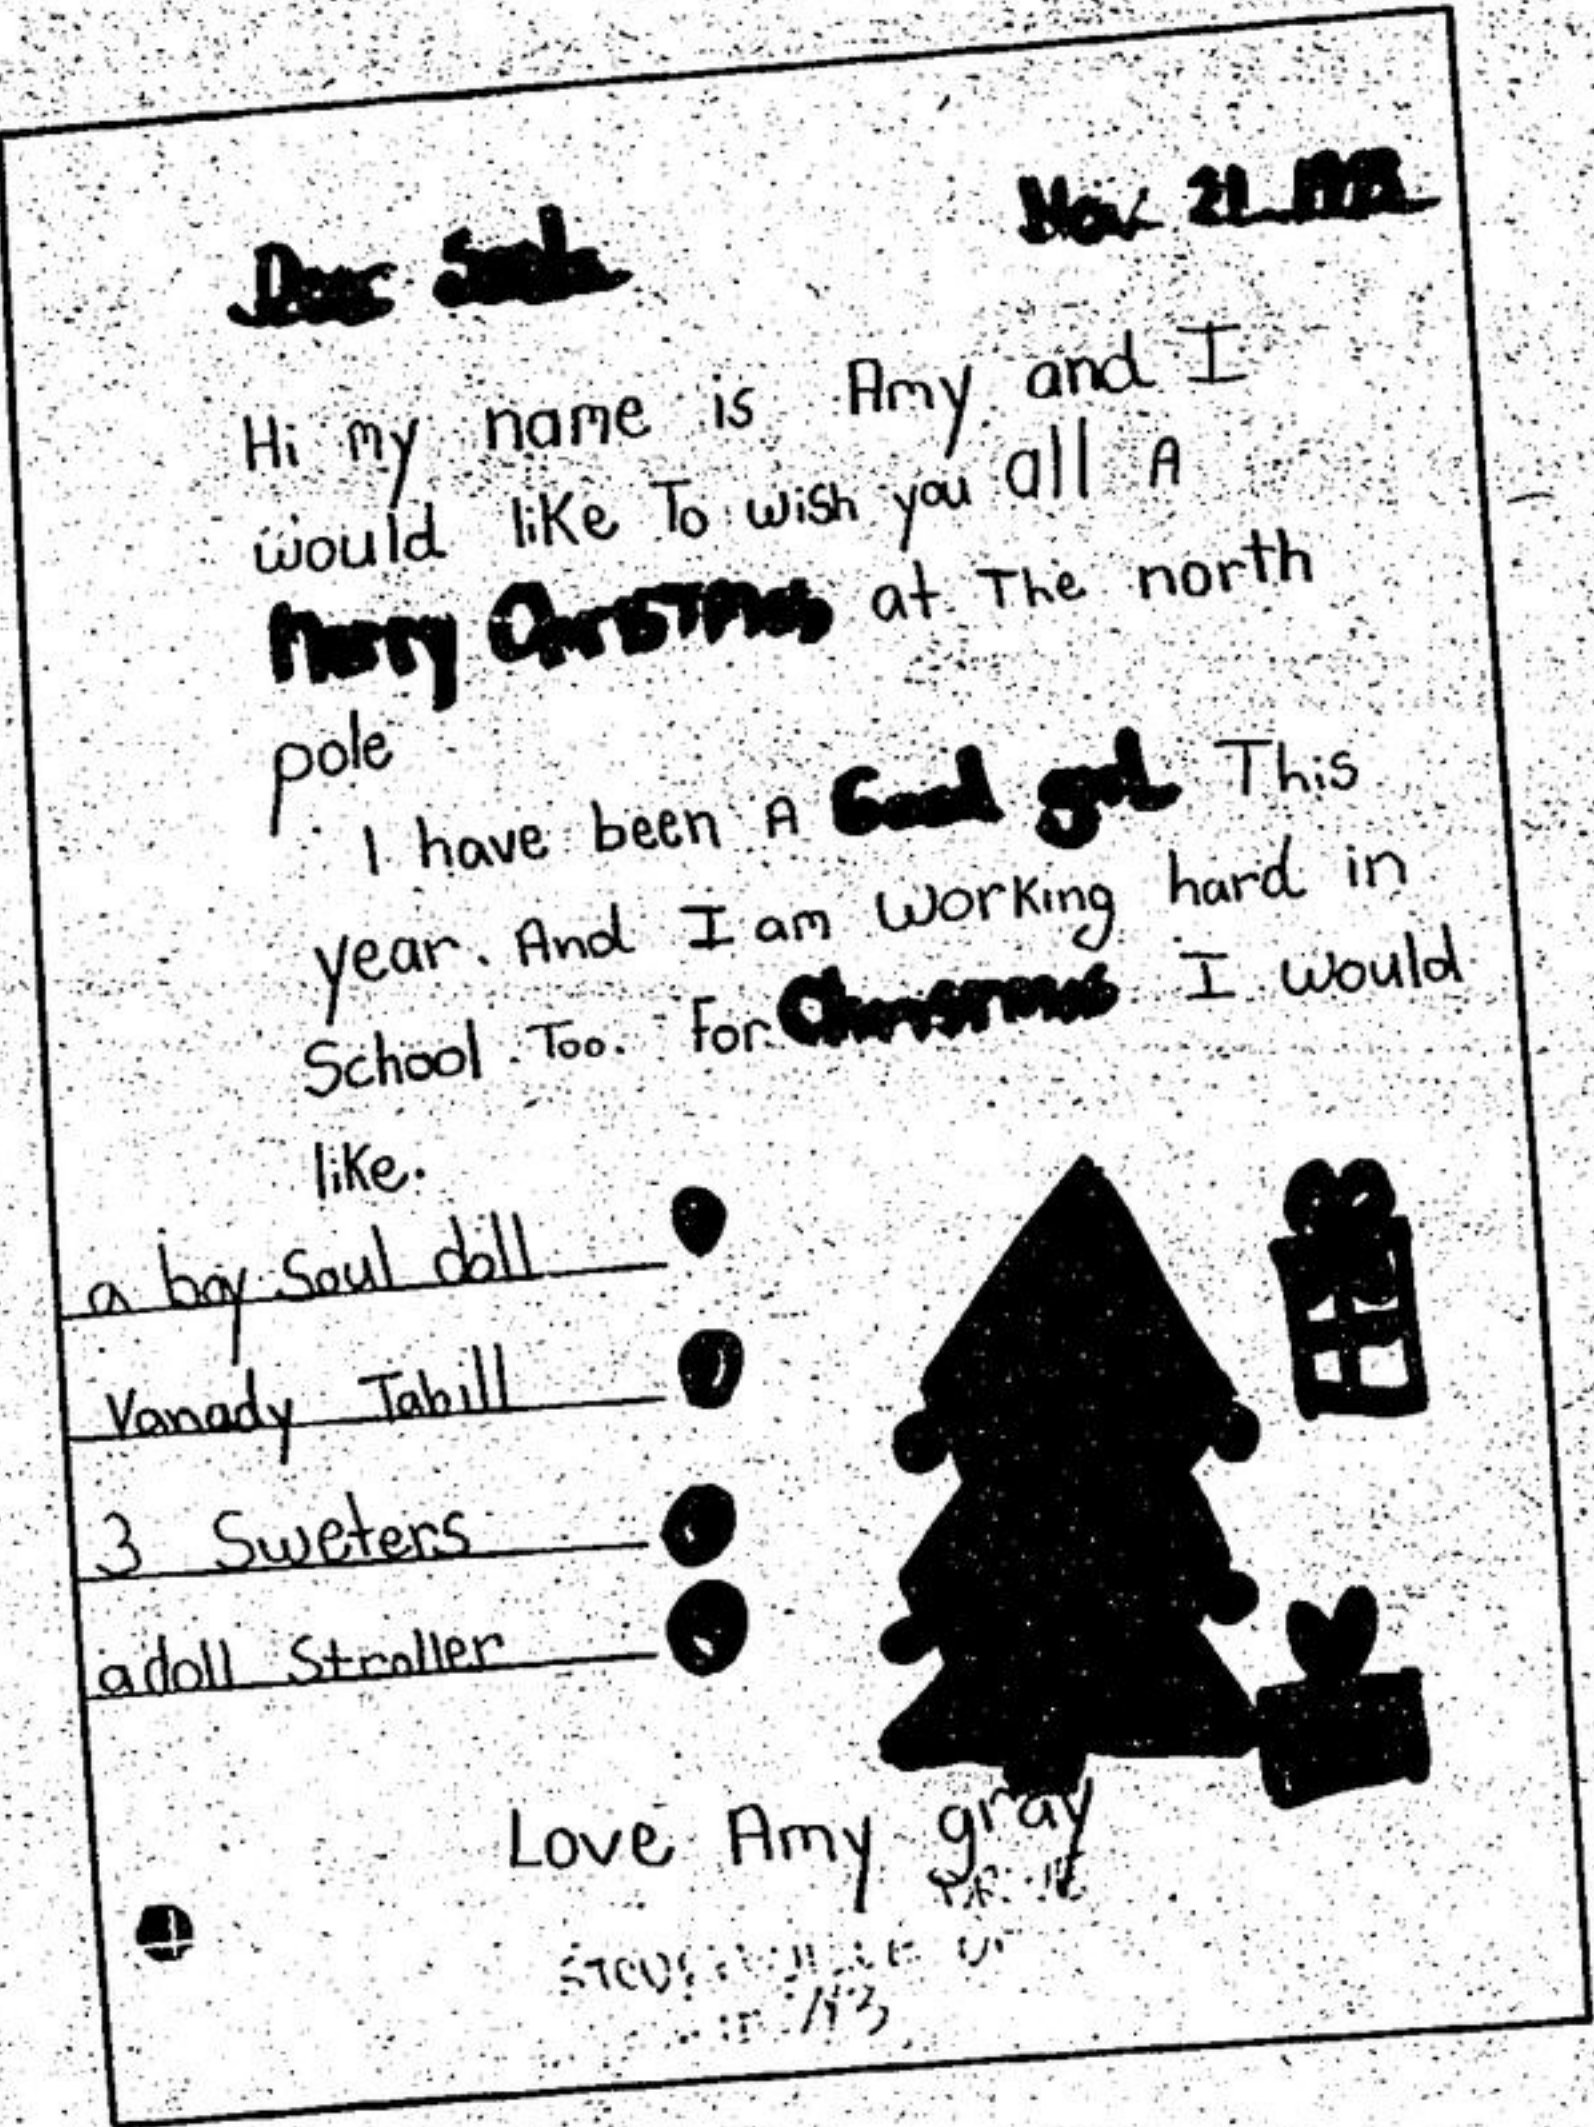 Nov 21
Dear Santa
Hi my name is Amy and I
would like To wish you all A
Merry Christmas at The north
pole
I have been A Good girl This
year. And I am working hard in
School Too. For Christmas I would
like.
a boy Soul doll
Vanady Tabill
3 Sweters
a doll Stroller
Love Amy gray